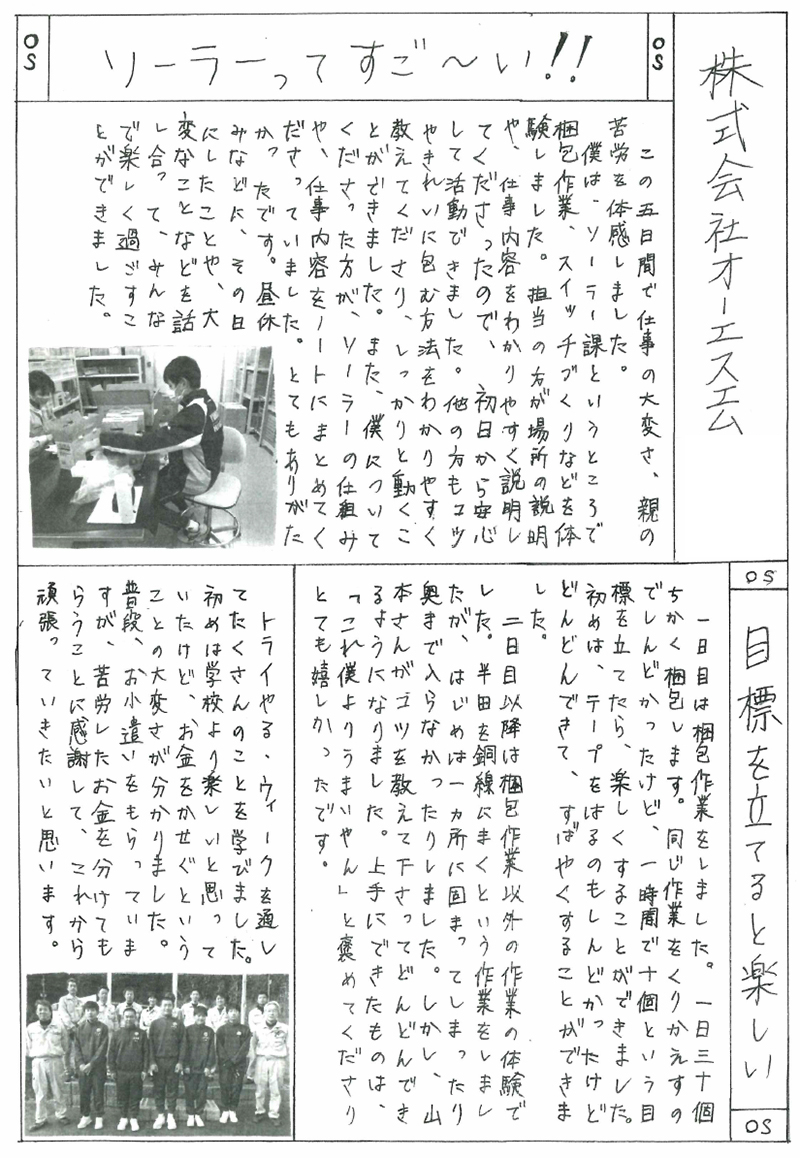 株式会社オーエスエム
OS
ソーラーってすご〜い!!
OS
この五日間で仕事の大変さ、親の
苦労を体感しました。
僕は、ソーラー課というところで
梱包作業、スイッチづくりなどを体
験しました。担当の方が場所の説明
や、仕事内容をわかりやすく説明し
てくださったので、初日から安心
して活動できました。他の方もコツ
やきれいに包む方法をわかりやすく
教えてくださり、しっかりと動くこ
とができました。また、僕について
くださった方が、ソーラーの仕組み
や、仕事内容をノートにまとめてく
ださっていました。とてもありがた
かったです。昼休
みなどに、その日
にしたことや、大
変なことなどを話
し合って、みんな
で楽しく過ごすこ
とができました。
OS
目標を立てると楽しい
OS
一日目は梱包作業をしました。一日三十個
ちかく梱包します。同じ作業をくりかえすの
でしんどかったけど、一時間で十個という目
標を立てたら、楽しくすることができました。
初めは、テープをはるのもしんどかったけど
どんどんできて、すばやくすることができま
した。
二日目以降は梱包作業以外の作業の体験で
した。半田を銅線にまくという作業をしまし
たが、はじめは一カ所に固まってしまったり
奥まで入らなかったりしました。しかし、山
本さんがコツを教えて下さってどんどんでき
るようになりました。上手にできたものは、
「これ僕よりうまいやん」と褒めてくださり
とても嬉しかったです。
トライやる・ウィークを通し
てたくさんのことを学びました。
初めは学校より楽しいと思って
いたけど、お金をかせぐという
ことの大変さが分かりました。
普段、お小遣いをもらっていま
すが、苦労したお金を分けても
らうことに感謝して、これから
頑張っていきたいと思います。